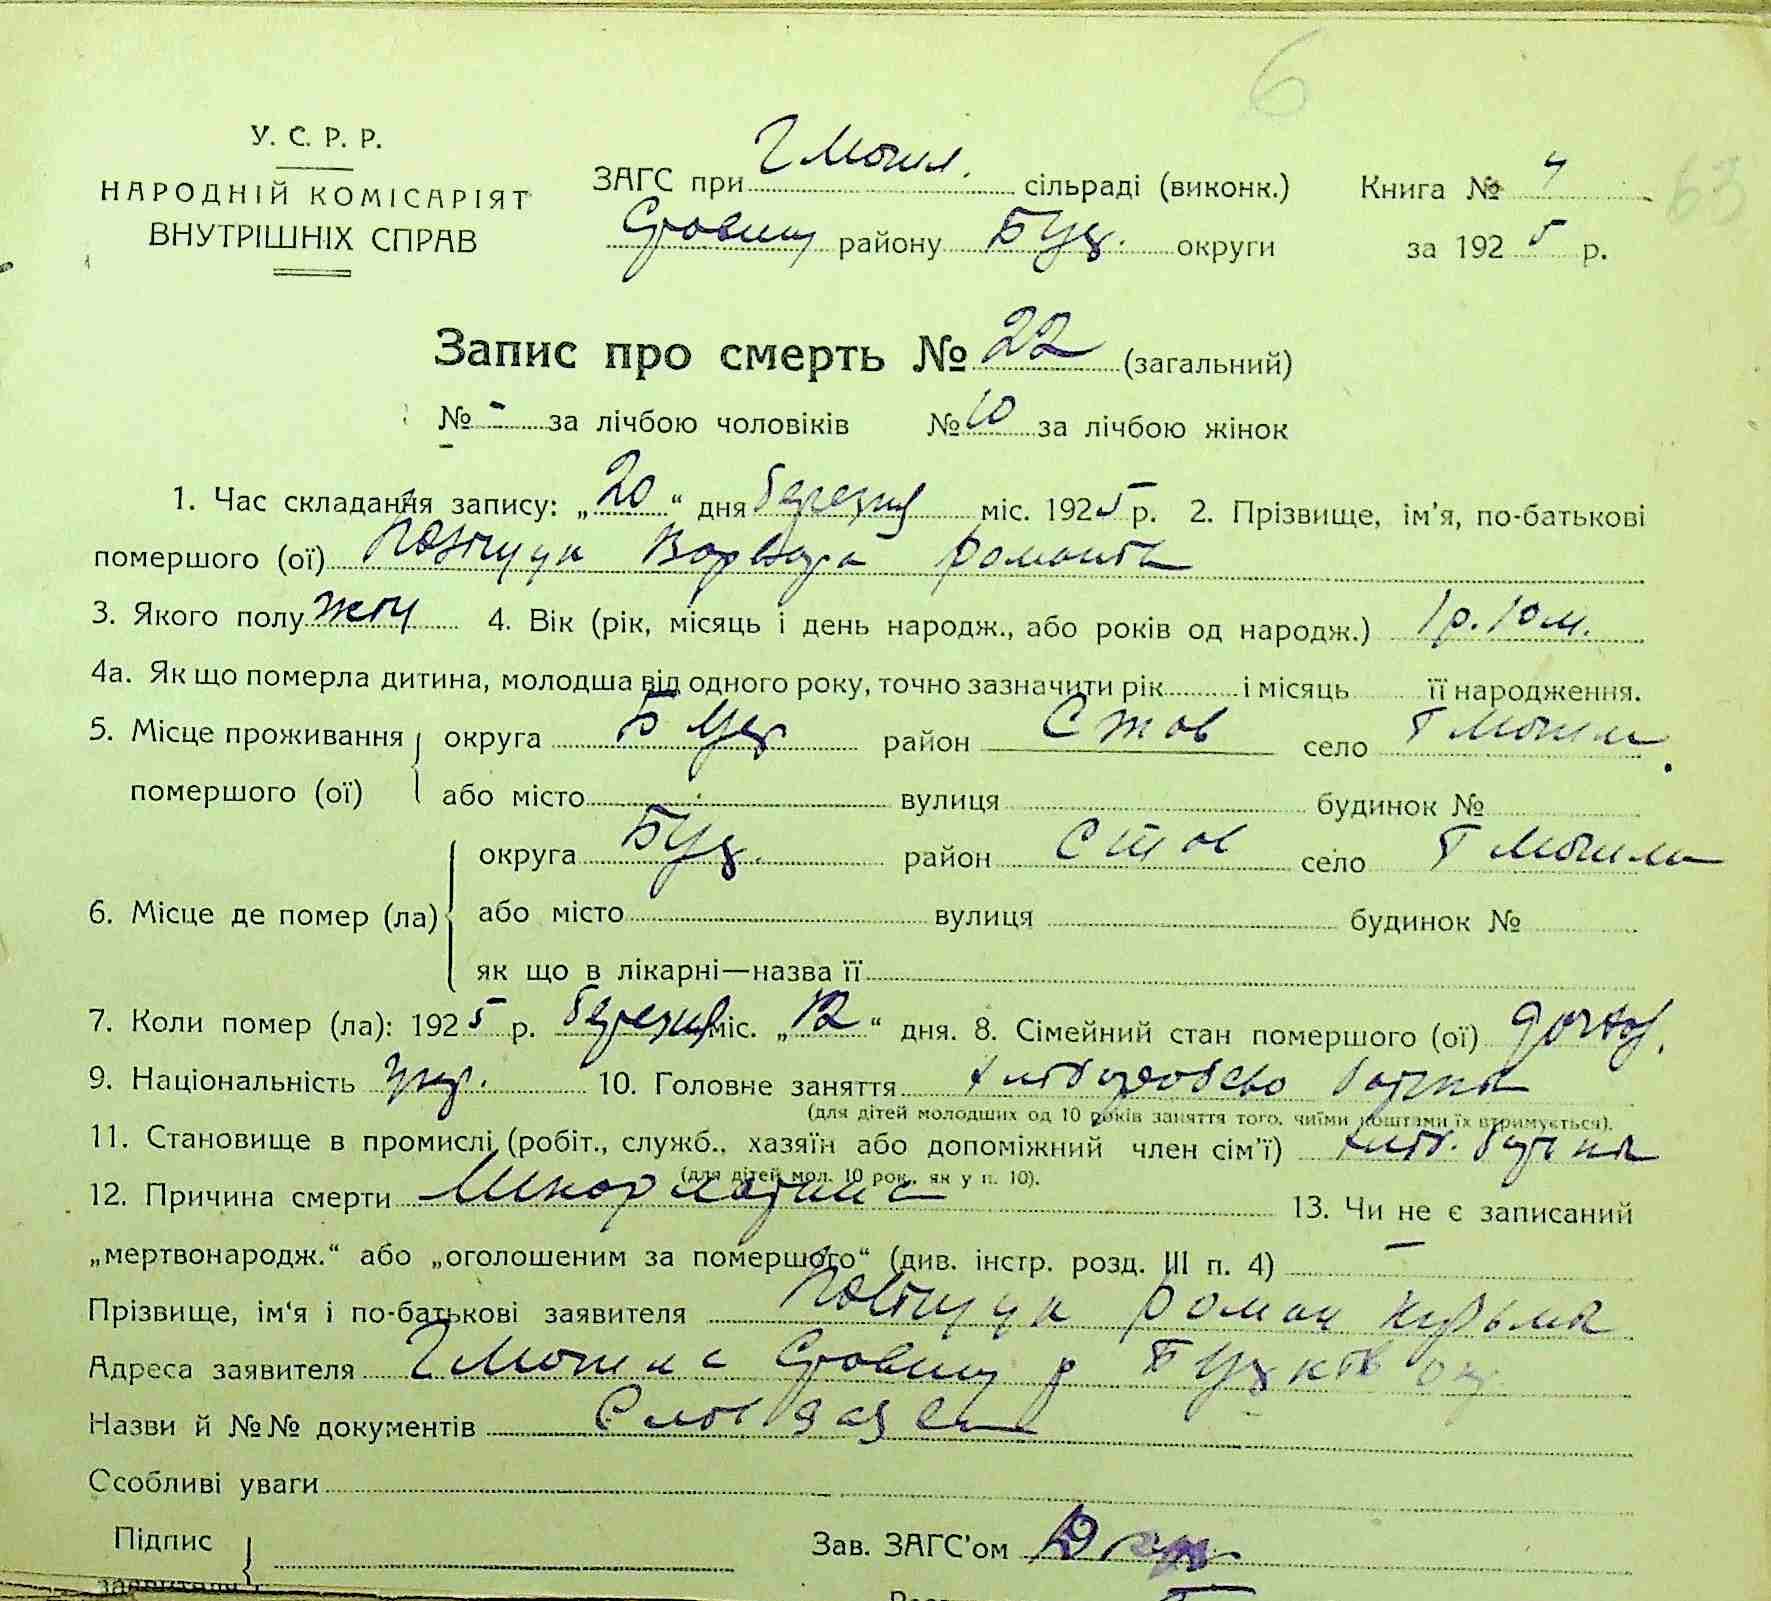 6
У. С. Р. Р.
НАРОДНІЙ КОМІСАРІЯТ
ВНУТРІШНІХ СПРАВ
ЗАГС при Г Могил. сільраді (виконк.) Книга № 4
63
району Буц. округи за 192 5 р.
Запис про смерть № 22 (загальний)
№ - за лічбою чоловіків № 10 за лічбою жінок
1. Час складання запису: „20“ дня березня міс. 1925 р. 2. Прізвище, ім'я, по-батькові
помершого (ої) Варвара Романів
3. Якого полу жін 4. Вік (рік, місяць і день народж., або років од народж.) 1 р. 10 м.
4а. Як що померла дитина, молодша від одного року, точно зазначити рік і місяць її народження.
5. Місце проживання округа Буц район Стов село Г Могила
помершого (ої) або місто вулиця будинок №
округа Буц. район Стов село Г Могила
6. Місце де помер (ла) або місто вулиця будинок №
як що в лікарні—назва її
7. Коли помер (ла): 1925 р. березня міс. „12“ дня. 8. Сімейний стан помершого (ої)
9. Національність Укр. 10. Головне заняття хліборобство батька
(для дітей молодших од 10 років заняття того, чиїми коштами їх втримується).
11. Становище в промислі (робіт., служб., хазяїн або допоміжний член сім'ї) батька
(для дітей мол. 10 рок., як у п. 10).
12. Причина смерти Шкарлатина 13. Чи не є записаний
„мертвонародж.“ або „оголошеним за помершого“ (див. інстр. розд. III п. 4) —
Прізвище, ім'я і по-батькові заявителя Роман
Адреса заявителя Г Могила р Буцьків ок
Назви й №№ документів
Особливі уваги
Підпис
заявителя
Зав. ЗАГС'ом